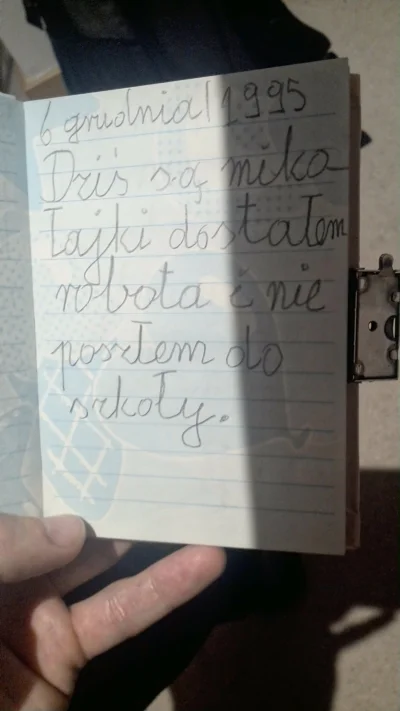 6 grudnia 1995
Dziś są miko
łajki dostałem
robota i nie
poszłem do
szkoły.